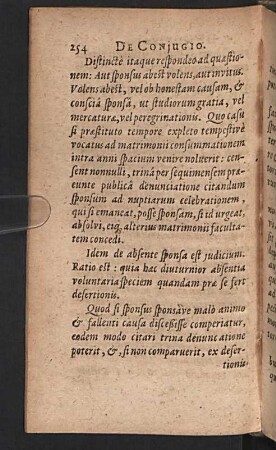 254 DE CONJUGIO.
Distinctè itaque respondeo ad quæstio-
nem: Aut sponsus abest volens, aut invitus.
Volens abest, vel ob honestam causam, &
consciâ sponsâ, ut studiorum gratia, vel
mercaturæ, vel peregrinationis. Quo casu
si præstituto tempore expleto tempestivè
vocatus ad matrimonii consummationem
intra anni spacium venire noluerit: cen-
sent nonnulli, trinâ per sequimensem præ-
eunte publicâ denunciatione citandum
sponsum ad nuptiarum celebrationem,
qui si emaneat, posse sponsam, si id urgeat,
absolvi, eiq; alterius matrimonii faculta-
tem concedi.
Idem de absente sponsa est judicium.
Ratio est: quia hac diuturnior absentia
voluntaria speciem quandam præ se fert
desertionis.
Quod si sponsus sponsáve malo animo
& fallenti causa discessisse comperiatur,
eodem modo citari trina denunciatione
poterit, &, si non comparuerit, ex deser-
tionis